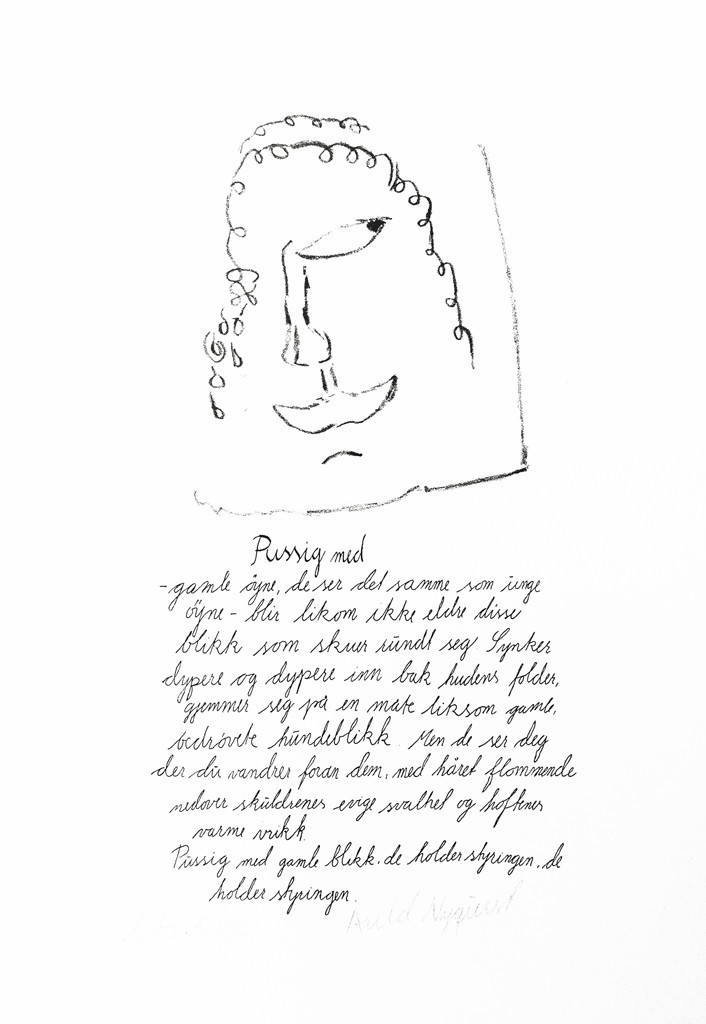 Pussig med
- gamle øyne, de ser det samme som unge
øyne - blir likom ikke eldre disse
blikk som skuer rundt seg Synker
dypere og dypere inn bak hudens folder,
gjemmer seg på en måte liksom gamle,
bedrøvete hundeblikk. Men de ser deg
der du vandrer foran dem, med håret flommende
nedover skuldrenes evige svalhet og hoftenes
varme vrikk.
Pussig med gamle blikk. de holder styringen. de
holder styringen.
Arild Nyquist